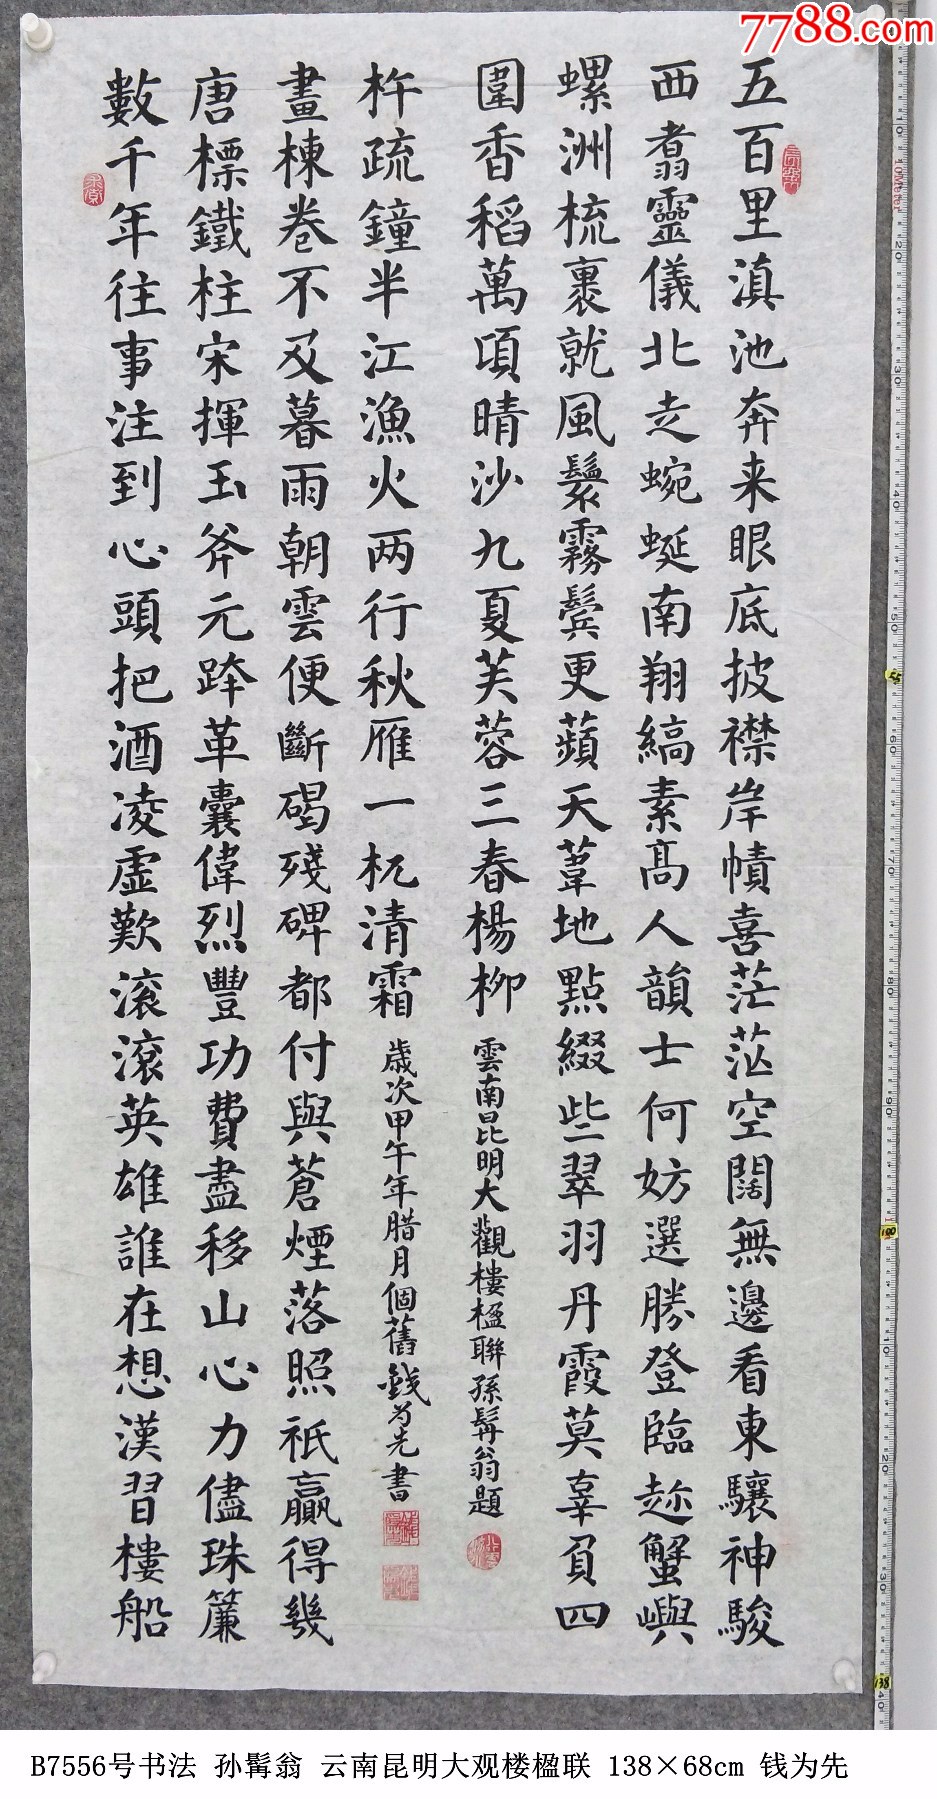 7788.com
五百里滇池奔来眼底披襟岸幘喜茫茫空闊無邊看東驤神駿
西翥靈儀北走蜿蜒南翔縞素高人韻士何妨選勝登臨趂蟹嶼
螺洲梳裹就風鬟霧鬢更蘋天葦地點綴些翠羽丹霞莫辜負四
圍香稻萬頃晴沙九夏芙蓉三春楊柳
雲南昆明大觀樓楹聯孫髯翁題
數千年往事注到心頭把酒凌虛歎滚滚英雄誰在想漢習樓船
唐標鐵柱宋揮玉斧元跨革囊偉烈豐功費盡移山心力儘珠簾
畫棟卷不及暮雨朝雲便斷碣殘碑都付與蒼煙落照祇贏得幾
杵疏鐘半江漁火两行秋雁一枕清霜
歲次甲午年腊月個舊錢为先書
B7556号书法 孙髯翁 云南昆明大观楼楹联 138×68cm 钱为先